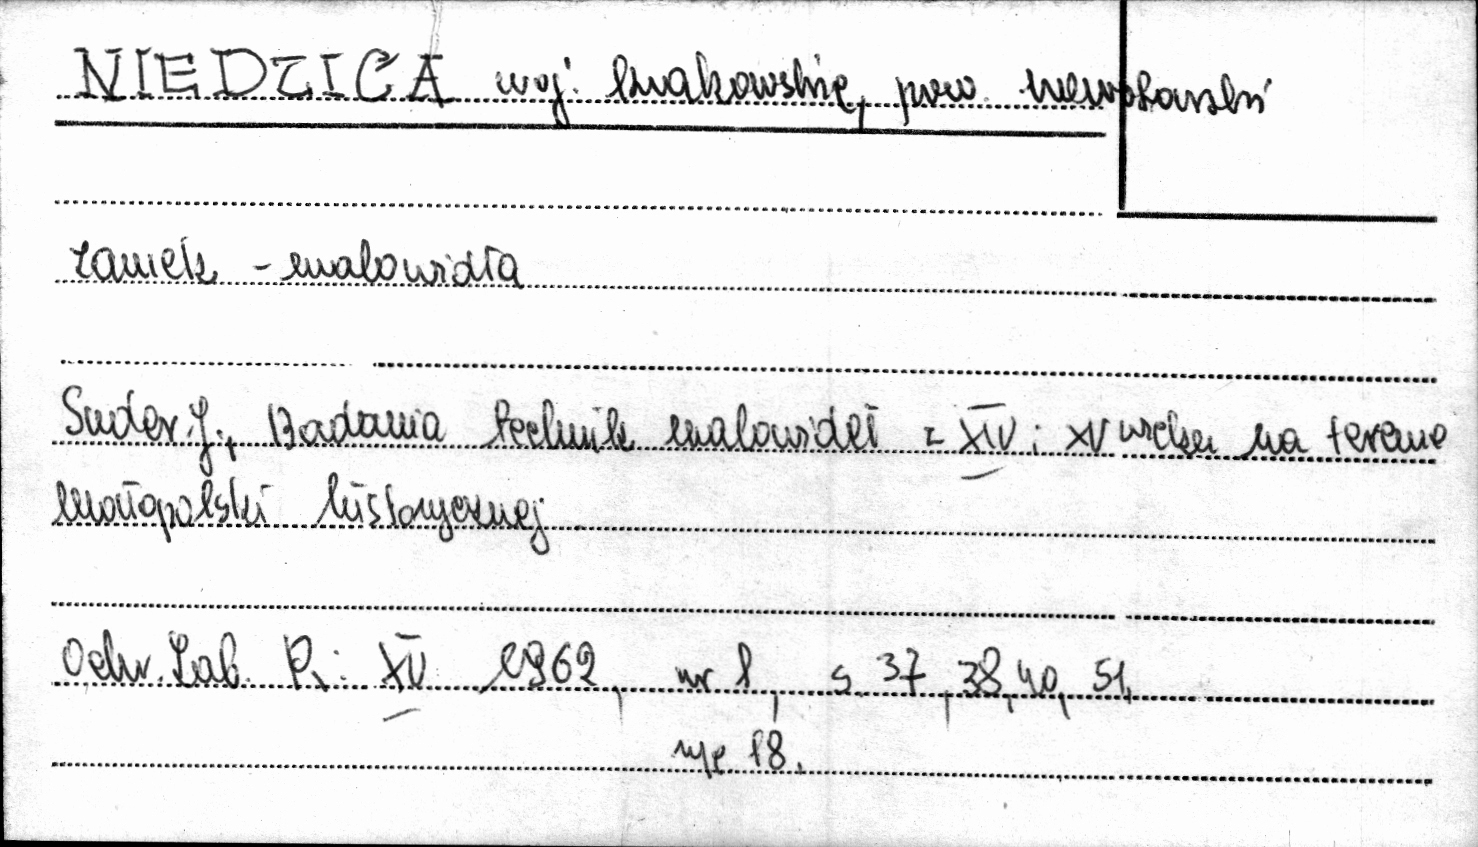 NIEDZICA woj. krakowskie, pow. nowotarski
Zamek - malowidła
Suder J., Badania technik malowideł z XIV i XV wieku na terenie
małopolski historycznej
Ochr. Zab. R: XV 1962, nr 1, s 37, 38, 40, 51,
ryc 18.